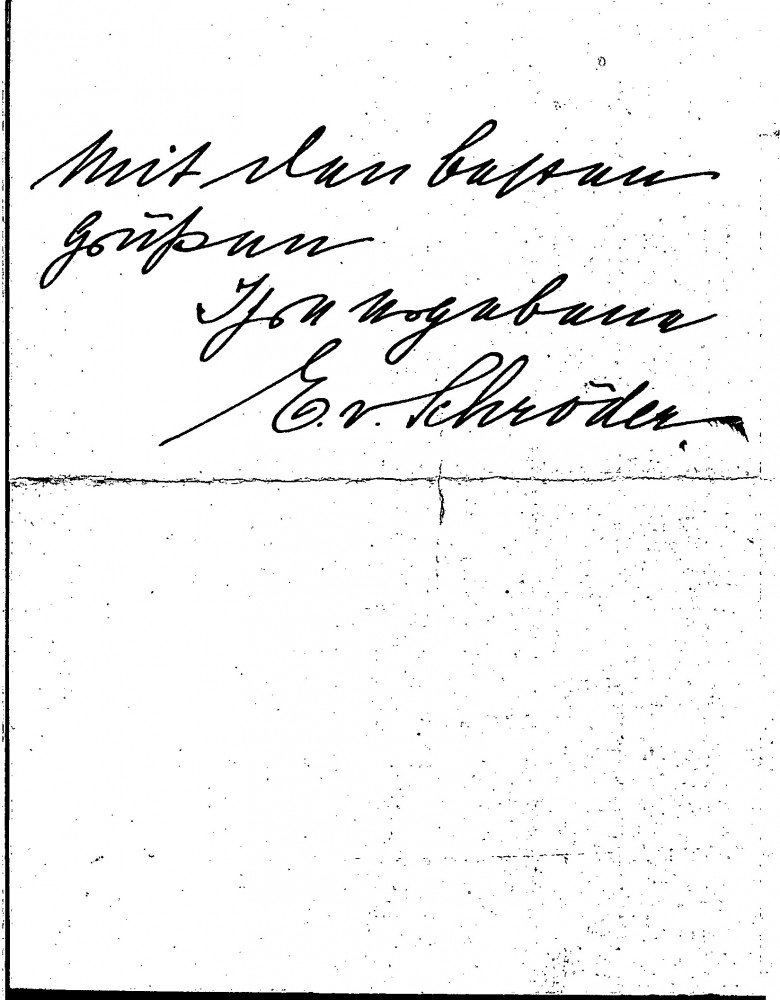 Mit den besten
Grüßen
Ihre ergebene
E. v. Schröder